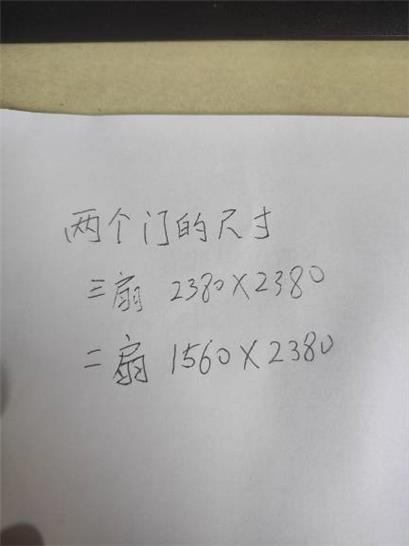 两个门的尺寸
三扇 2380×2380
二扇 1560×2380